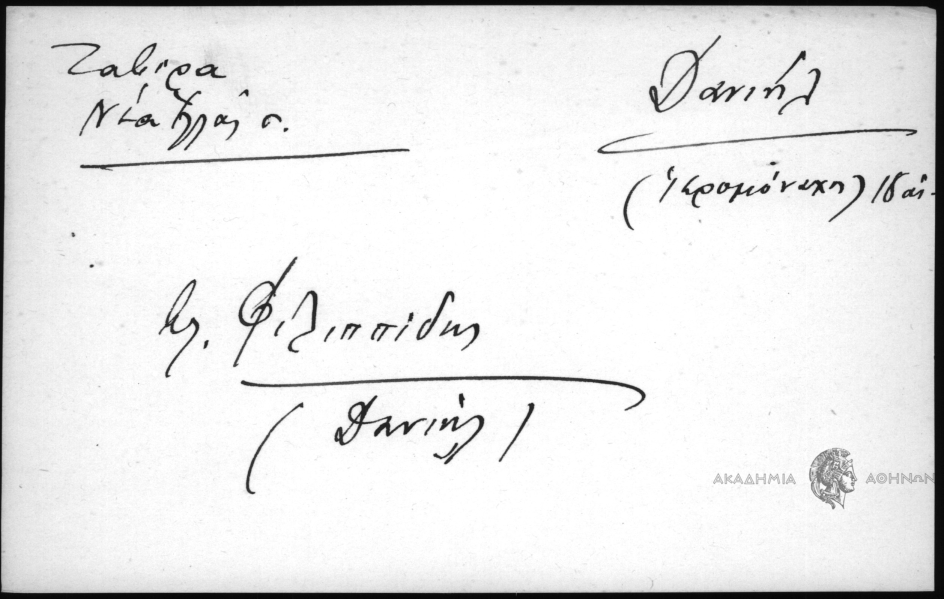 Ζαβίρα
Νέα Ἑλλάς σ.
Δανιήλ
(ἱερομόναχος) 18 αἰ.
βλ. Φιλιππίδης
(Δανιήλ)
ΑΚΑΔΗΜΙΑ ΑΘΗΝΩΝ